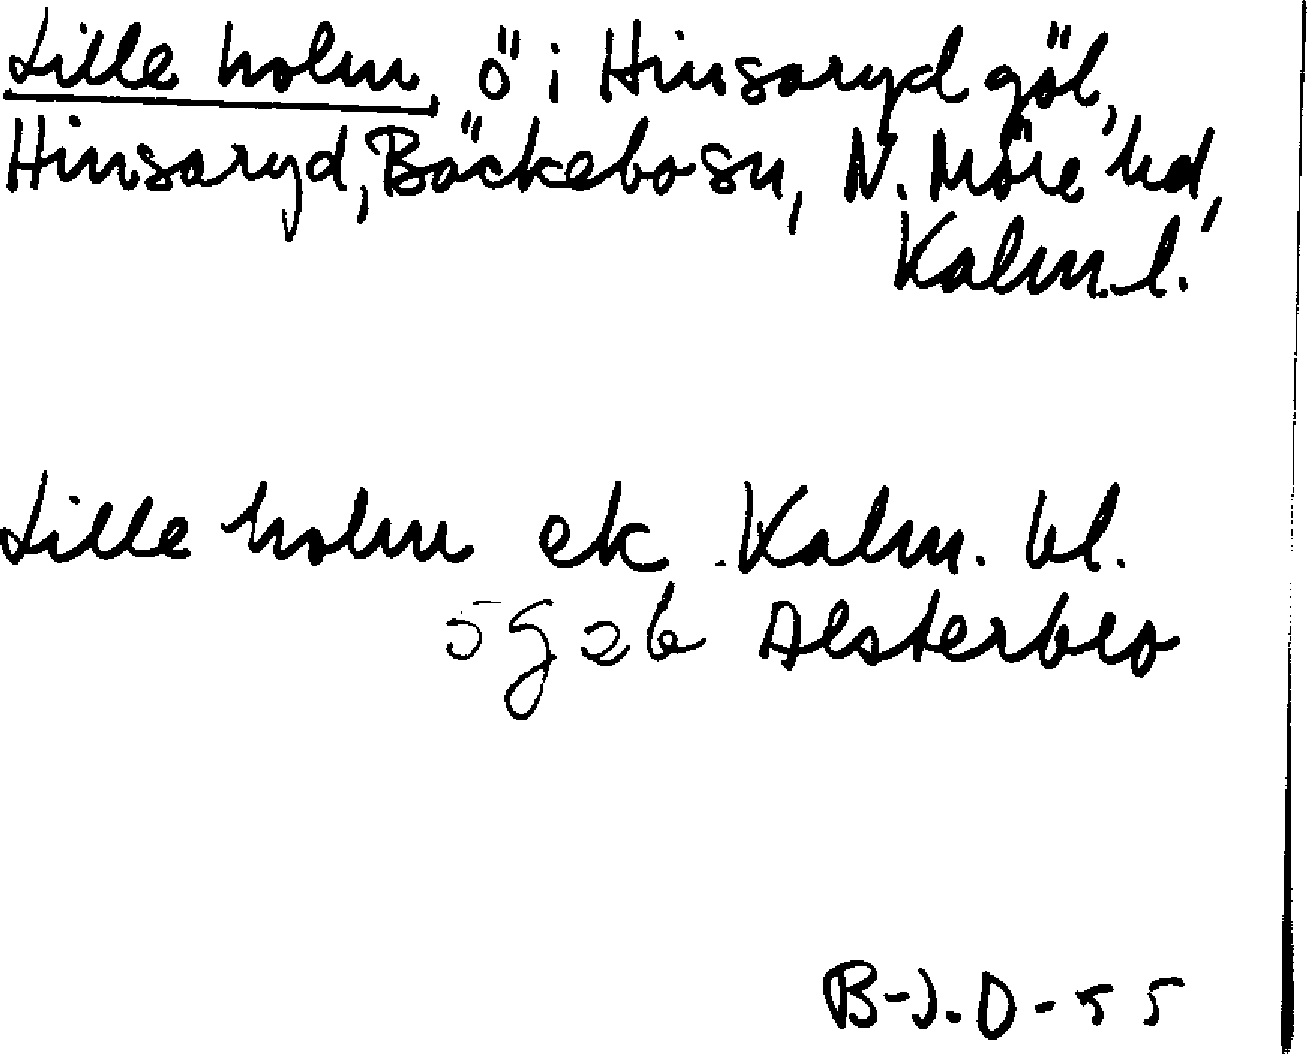 Lille holm, ö i Hinsaryd göl,
Hinsaryd, Bäckebo sn, N. Möre hd,
Kalm. l.
Lille holm ek. Kalm. bl.
5 g 2 b Alsterbro
B-J. D - 55